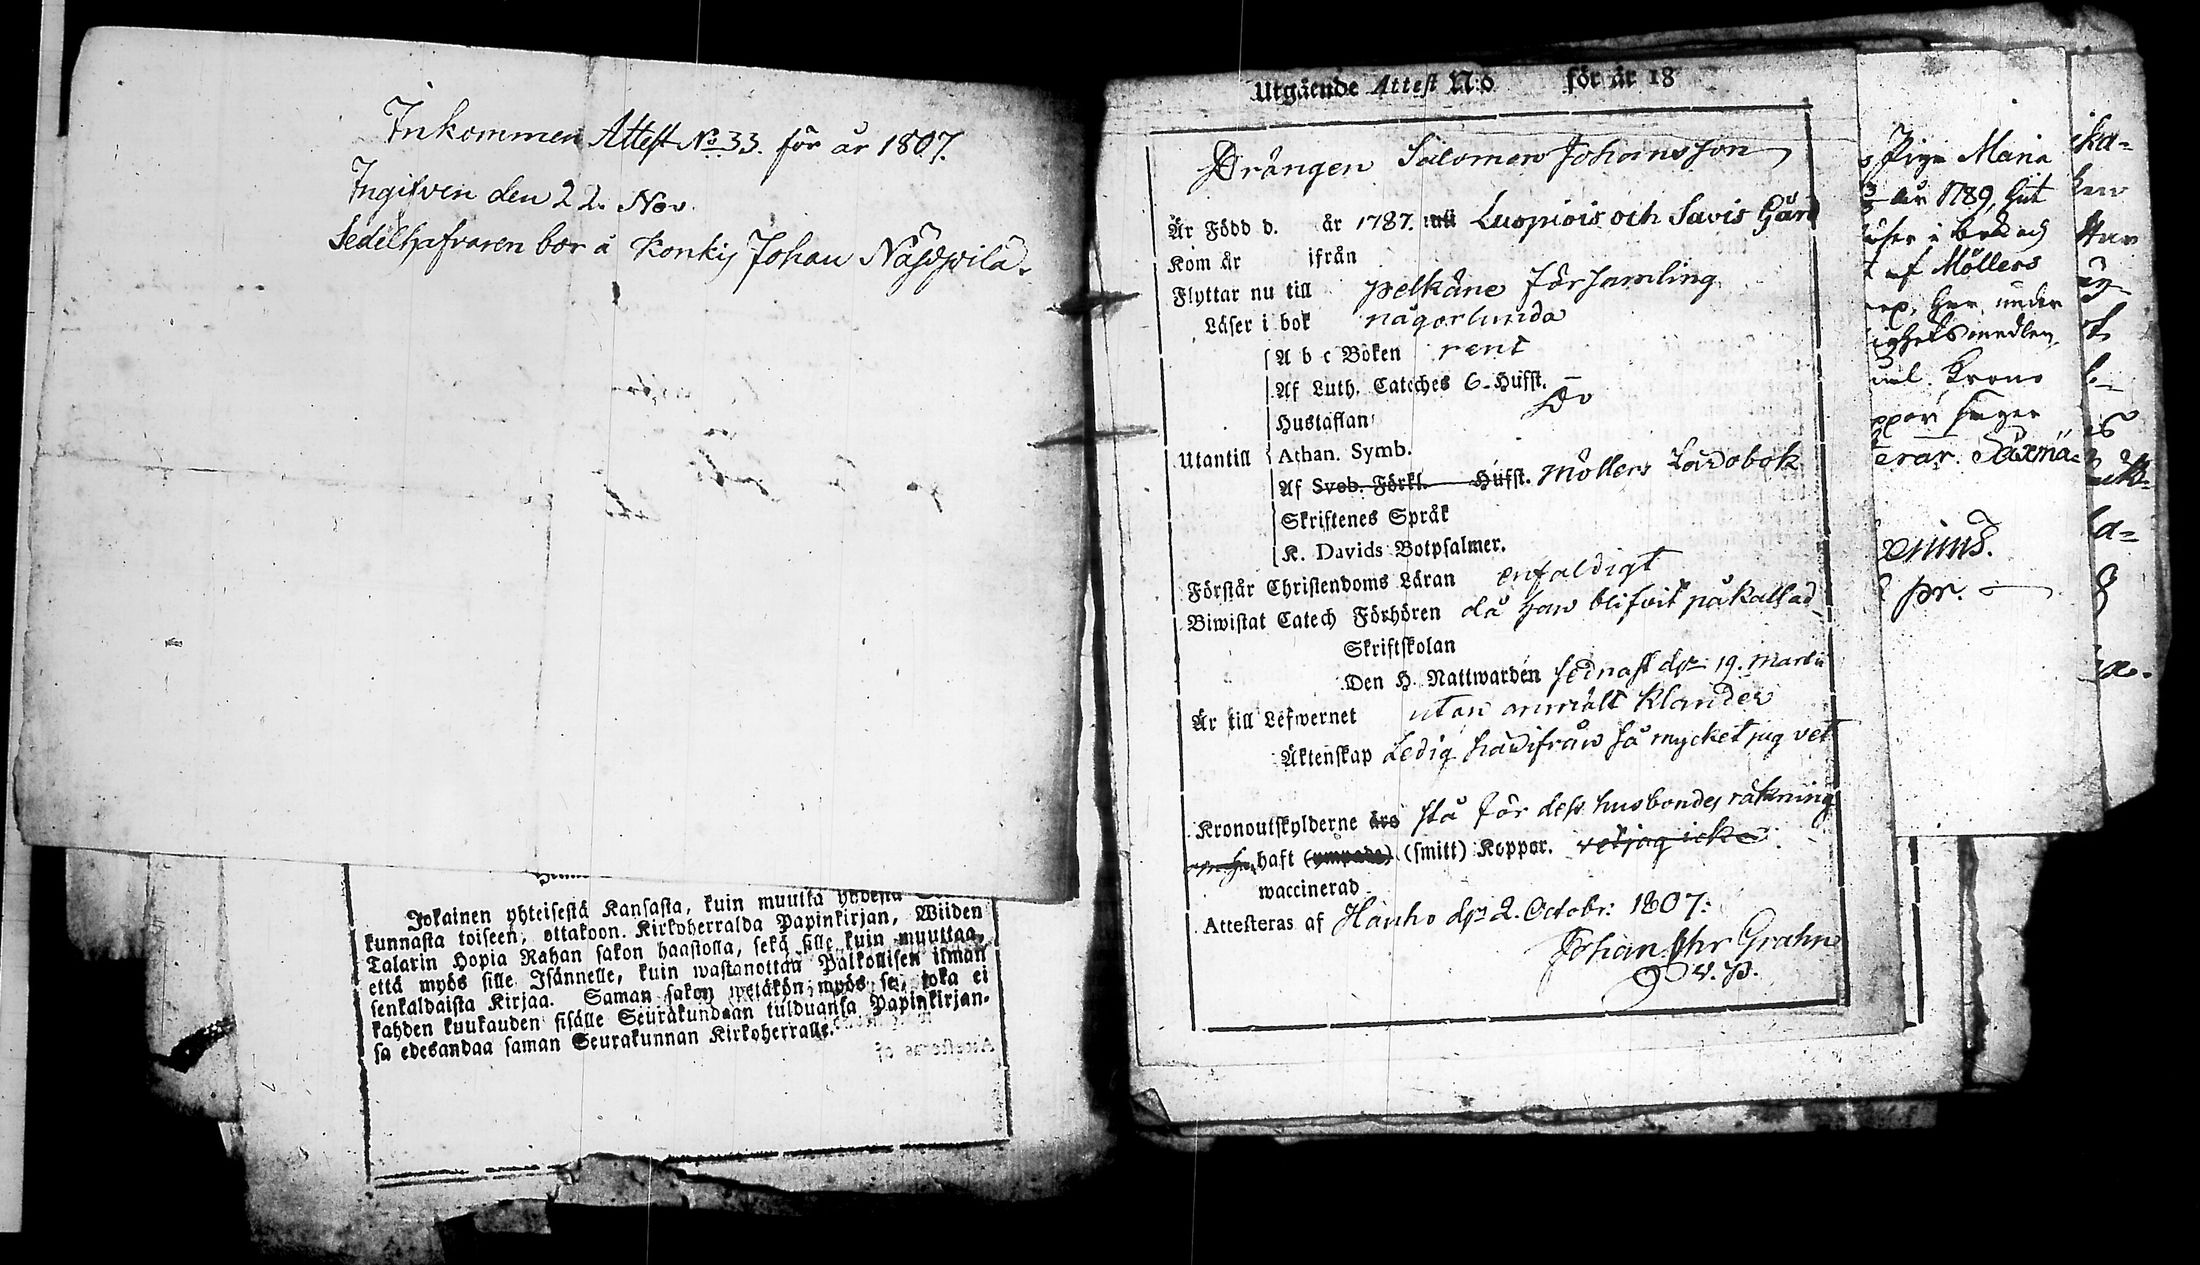 Inkommen Attest No 33. för år 1807.
Ingifven den 22. Nov.
Sedelhafvaren bor å Konkis Johan
Jokainen yhteisestä Kansasta, kuin muutta yhdestä
kunnasta toiseen, ottakoon Kirkoherralda Papinkirjan, Wiiden
Talarin Hopia Rahan sakon haastolla, sekä sille kuin muuttaa,
että myös sille Isännelle, kuin wastanottaa Palkollisen ilman
senkaldaista Kirjaa. Saman sakon wetäkön myös se, joka ei
kahden kuukauden sisälle Seurakundaan tulduansa Papinkirjan-
sa edesandaa saman Seurakunnan Kirkoherralle.
Attesteras af
Utgående Attest N:o för år 18
Drängen Salomon Johansson
Är Född d. år 1787. uti Luspiois och Savis Gård
Kom år ifrån
Flyttar nu till pelkäne församling
Läser i bok någorlunda
A b c Boken rent
Af Luth. Cateches 6 Hufst. –
Hustaflan Do
Utantill Athan. Symb.
Af Sveb. Förkl. Hufst. Möllers Lärobok
Skriftenes Språk
K. Davids Botpsalmer.
Förstår Christendoms Läran enfaldigt
Biwistat Catech Förhören då han blifvit påkallad
Skriftskolan
Den H. Nattwarden sednast d. 19. Martii
Är till Lefwernet utan anmält klander
Äktenskap Ledig hädifrån så mycket jag vet
Kronoutskylderne äro stå för dess husbondes räkning
om han haft (ympade) (smitt) Koppor. vet jag icke
waccinerad
Attesteras af Hauho d. 2. Octobr: 1807:
Johan Chr Grahn
v. p.
Piga Maria
år 1789,
af Möllers
under
Krono
pr. –